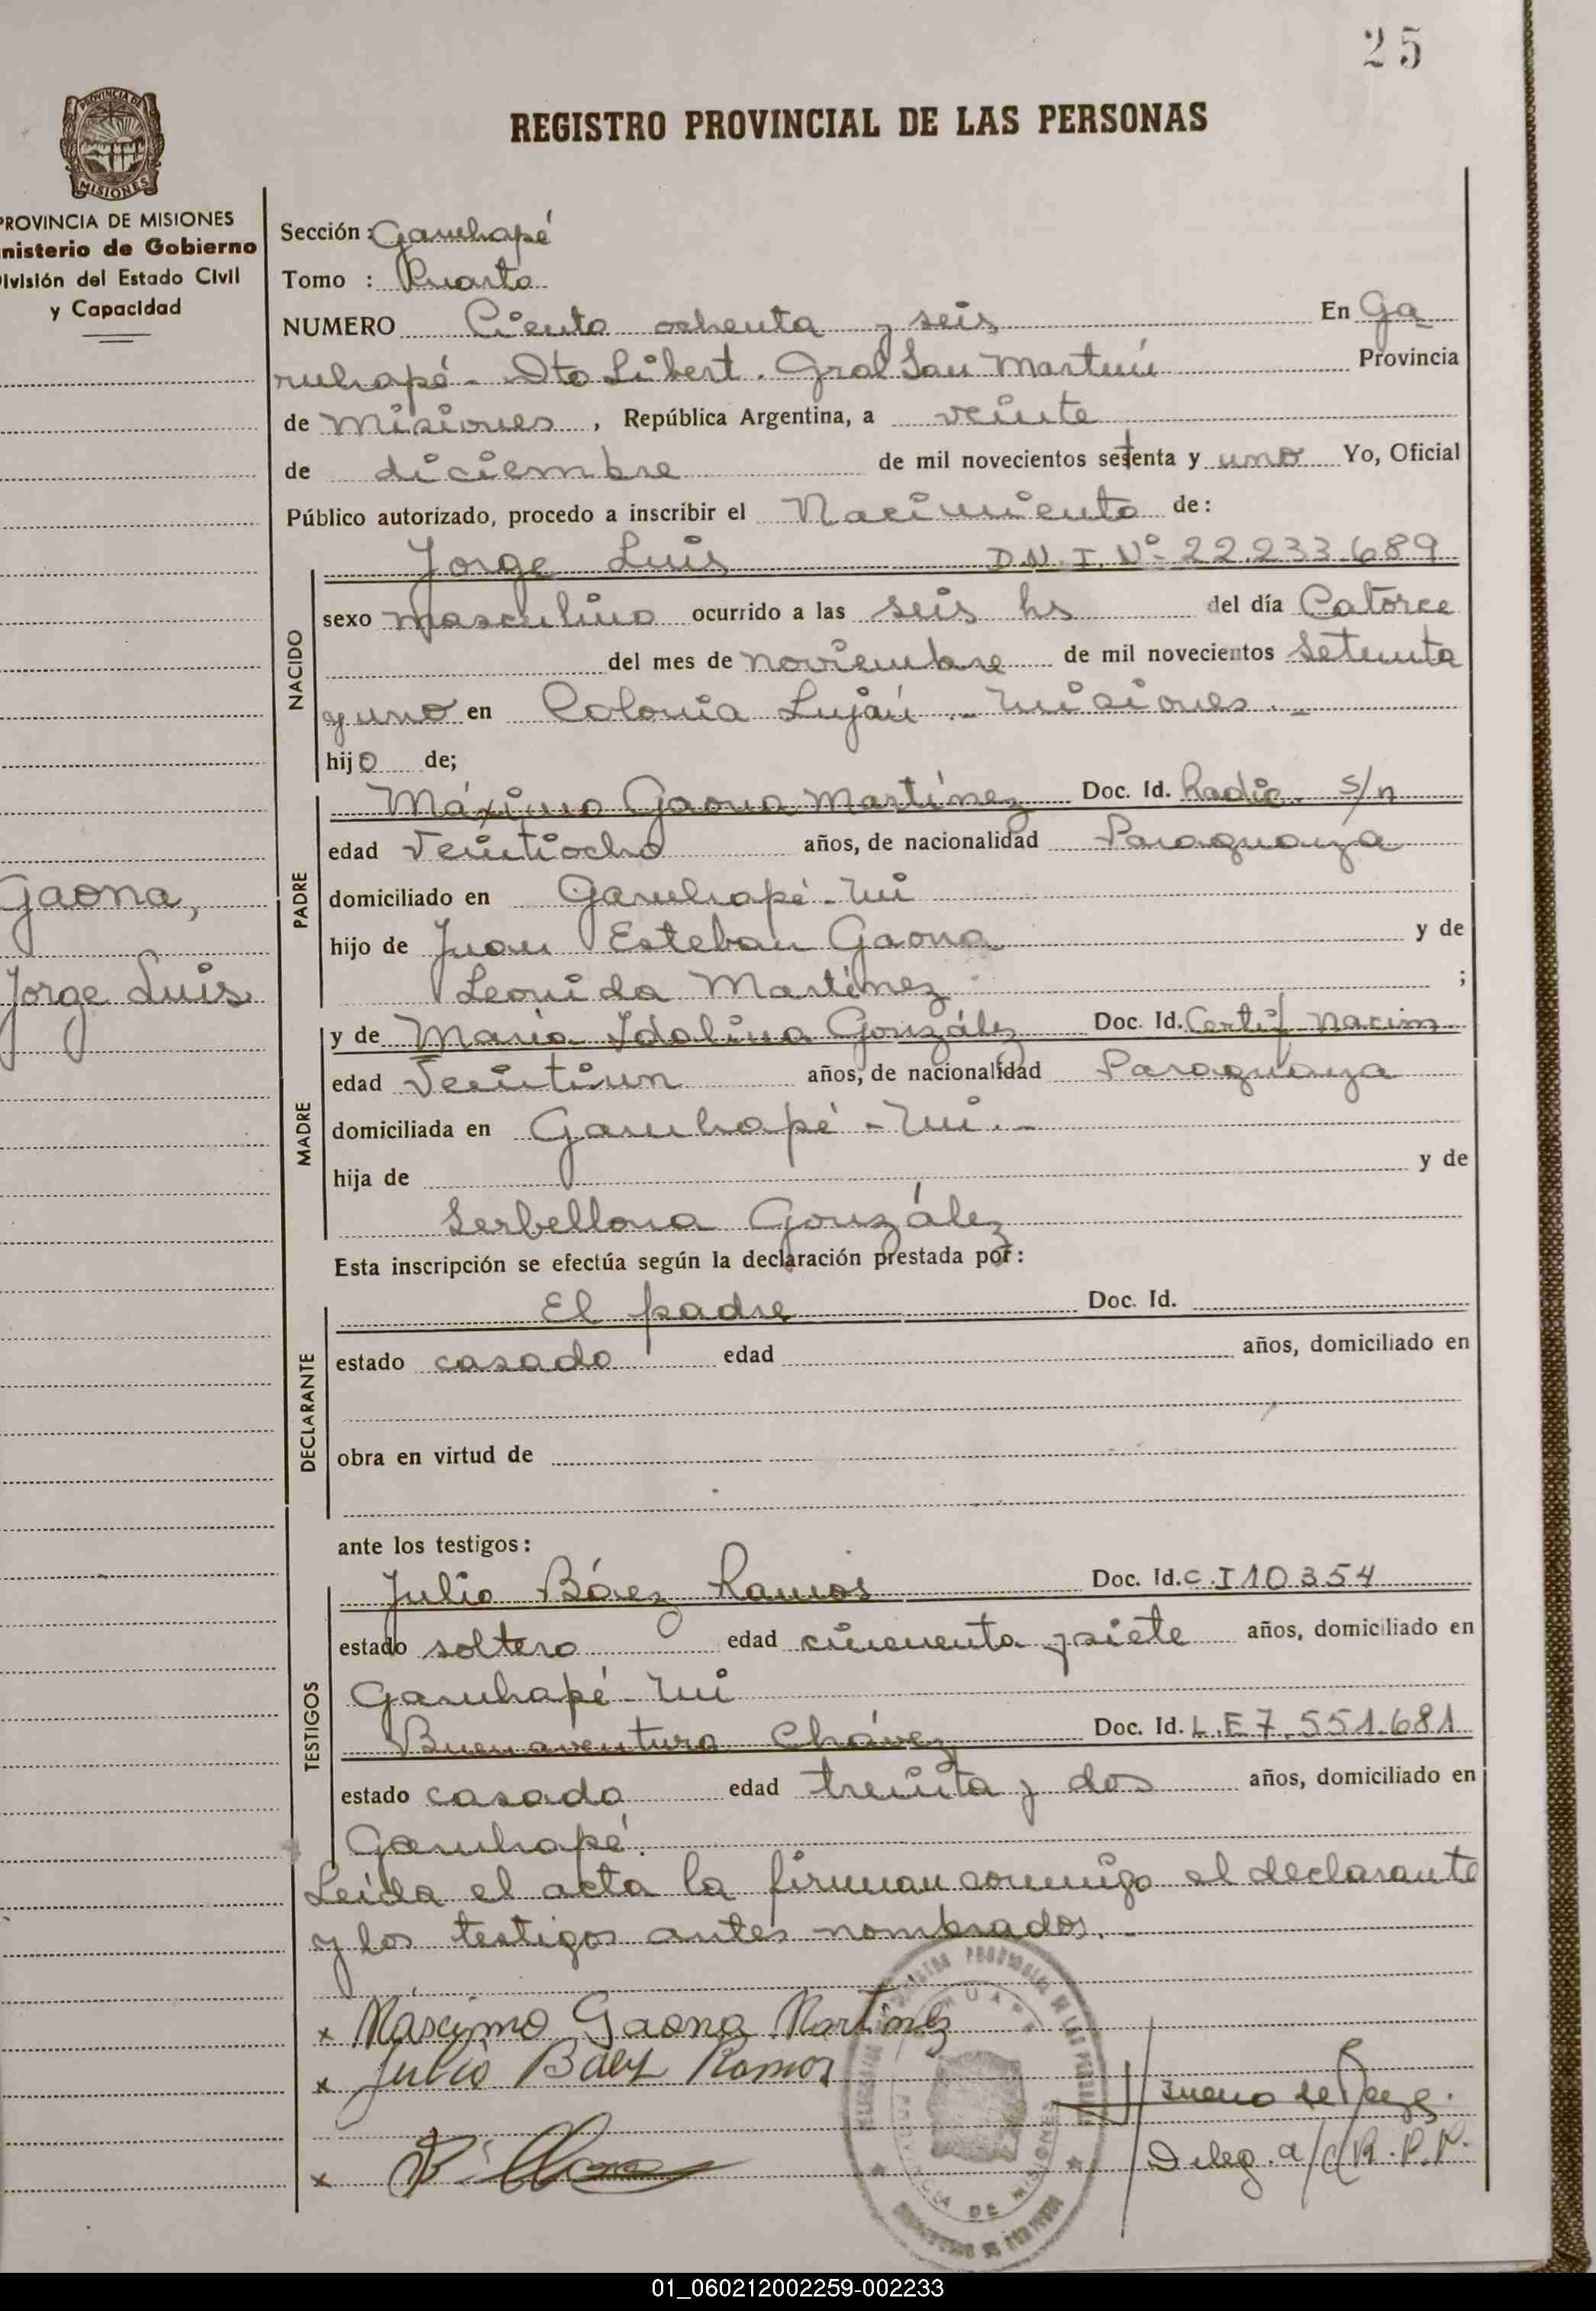 25
REGISTRO PROVINCIAL DE LAS PERSONAS
PROVINCIA DE
MISIONES
PROVINCIA DE MISIONES
nisterio de Gobierno
ivisión del Estado Civil
y Capacidad
Gaona,
Jorge Luis
Sección: Garuhapé
Tomo : Cuarto
NUMERO Ciento ochenta y seis En Ga
ruhapé - Dto Libert. Gral San Martín Provincia
de Misiones, República Argentina, a veinte
de diciembre de mil novecientos setenta y uno Yo, Oficial
Público autorizado, procedo a inscribir el Nacimiento de:
NACIDO
Jorge Luis D.N.I. Nº 22.233.689
sexo masculino ocurrido a las seis hs del día Catorce
del mes de noviembre de mil novecientos setenta
y uno en Colonia Luján - Misiones.-
hijo de;
PADRE
Máximo Gaona Martínez Doc. Id. Radic. s/n
edad Veintiocho años, de nacionalidad Paraguaya
domiciliado en Garuhapé-Mi
hijo de Juan Esteban Gaona y de
Leonida Martínez ;
MADRE
y de María Idalina González Doc. Id. Certif. Nacim.
edad Veintiun años, de nacionalidad Paraguaya
domiciliada en Garuhapé - Mi.-
hija de y de
Serbellona González
Esta inscripción se efectúa según la declaración prestada por:
DECLARANTE
El padre Doc. Id.
estado casado edad años, domiciliado en
obra en virtud de
ante los testigos:
TESTIGOS
Julio Báez Ramos Doc. Id. C.I 10354
estado soltero edad cincuenta y siete años, domiciliado en
Garuhapé-Mi
Buenaventura Chávez Doc. Id. L.E 7.551.681
estado casado edad treinta y dos años, domiciliado en
Garuhapé.
Leída el acta la firman conmigo el declarante
y los testigos antes nombrados.-
x Máximo Gaona Martinez
x Julio Baez Ramos
x B.
Deleg. a/c R.P.P.
DE MISIONES
01_060212002259-002233